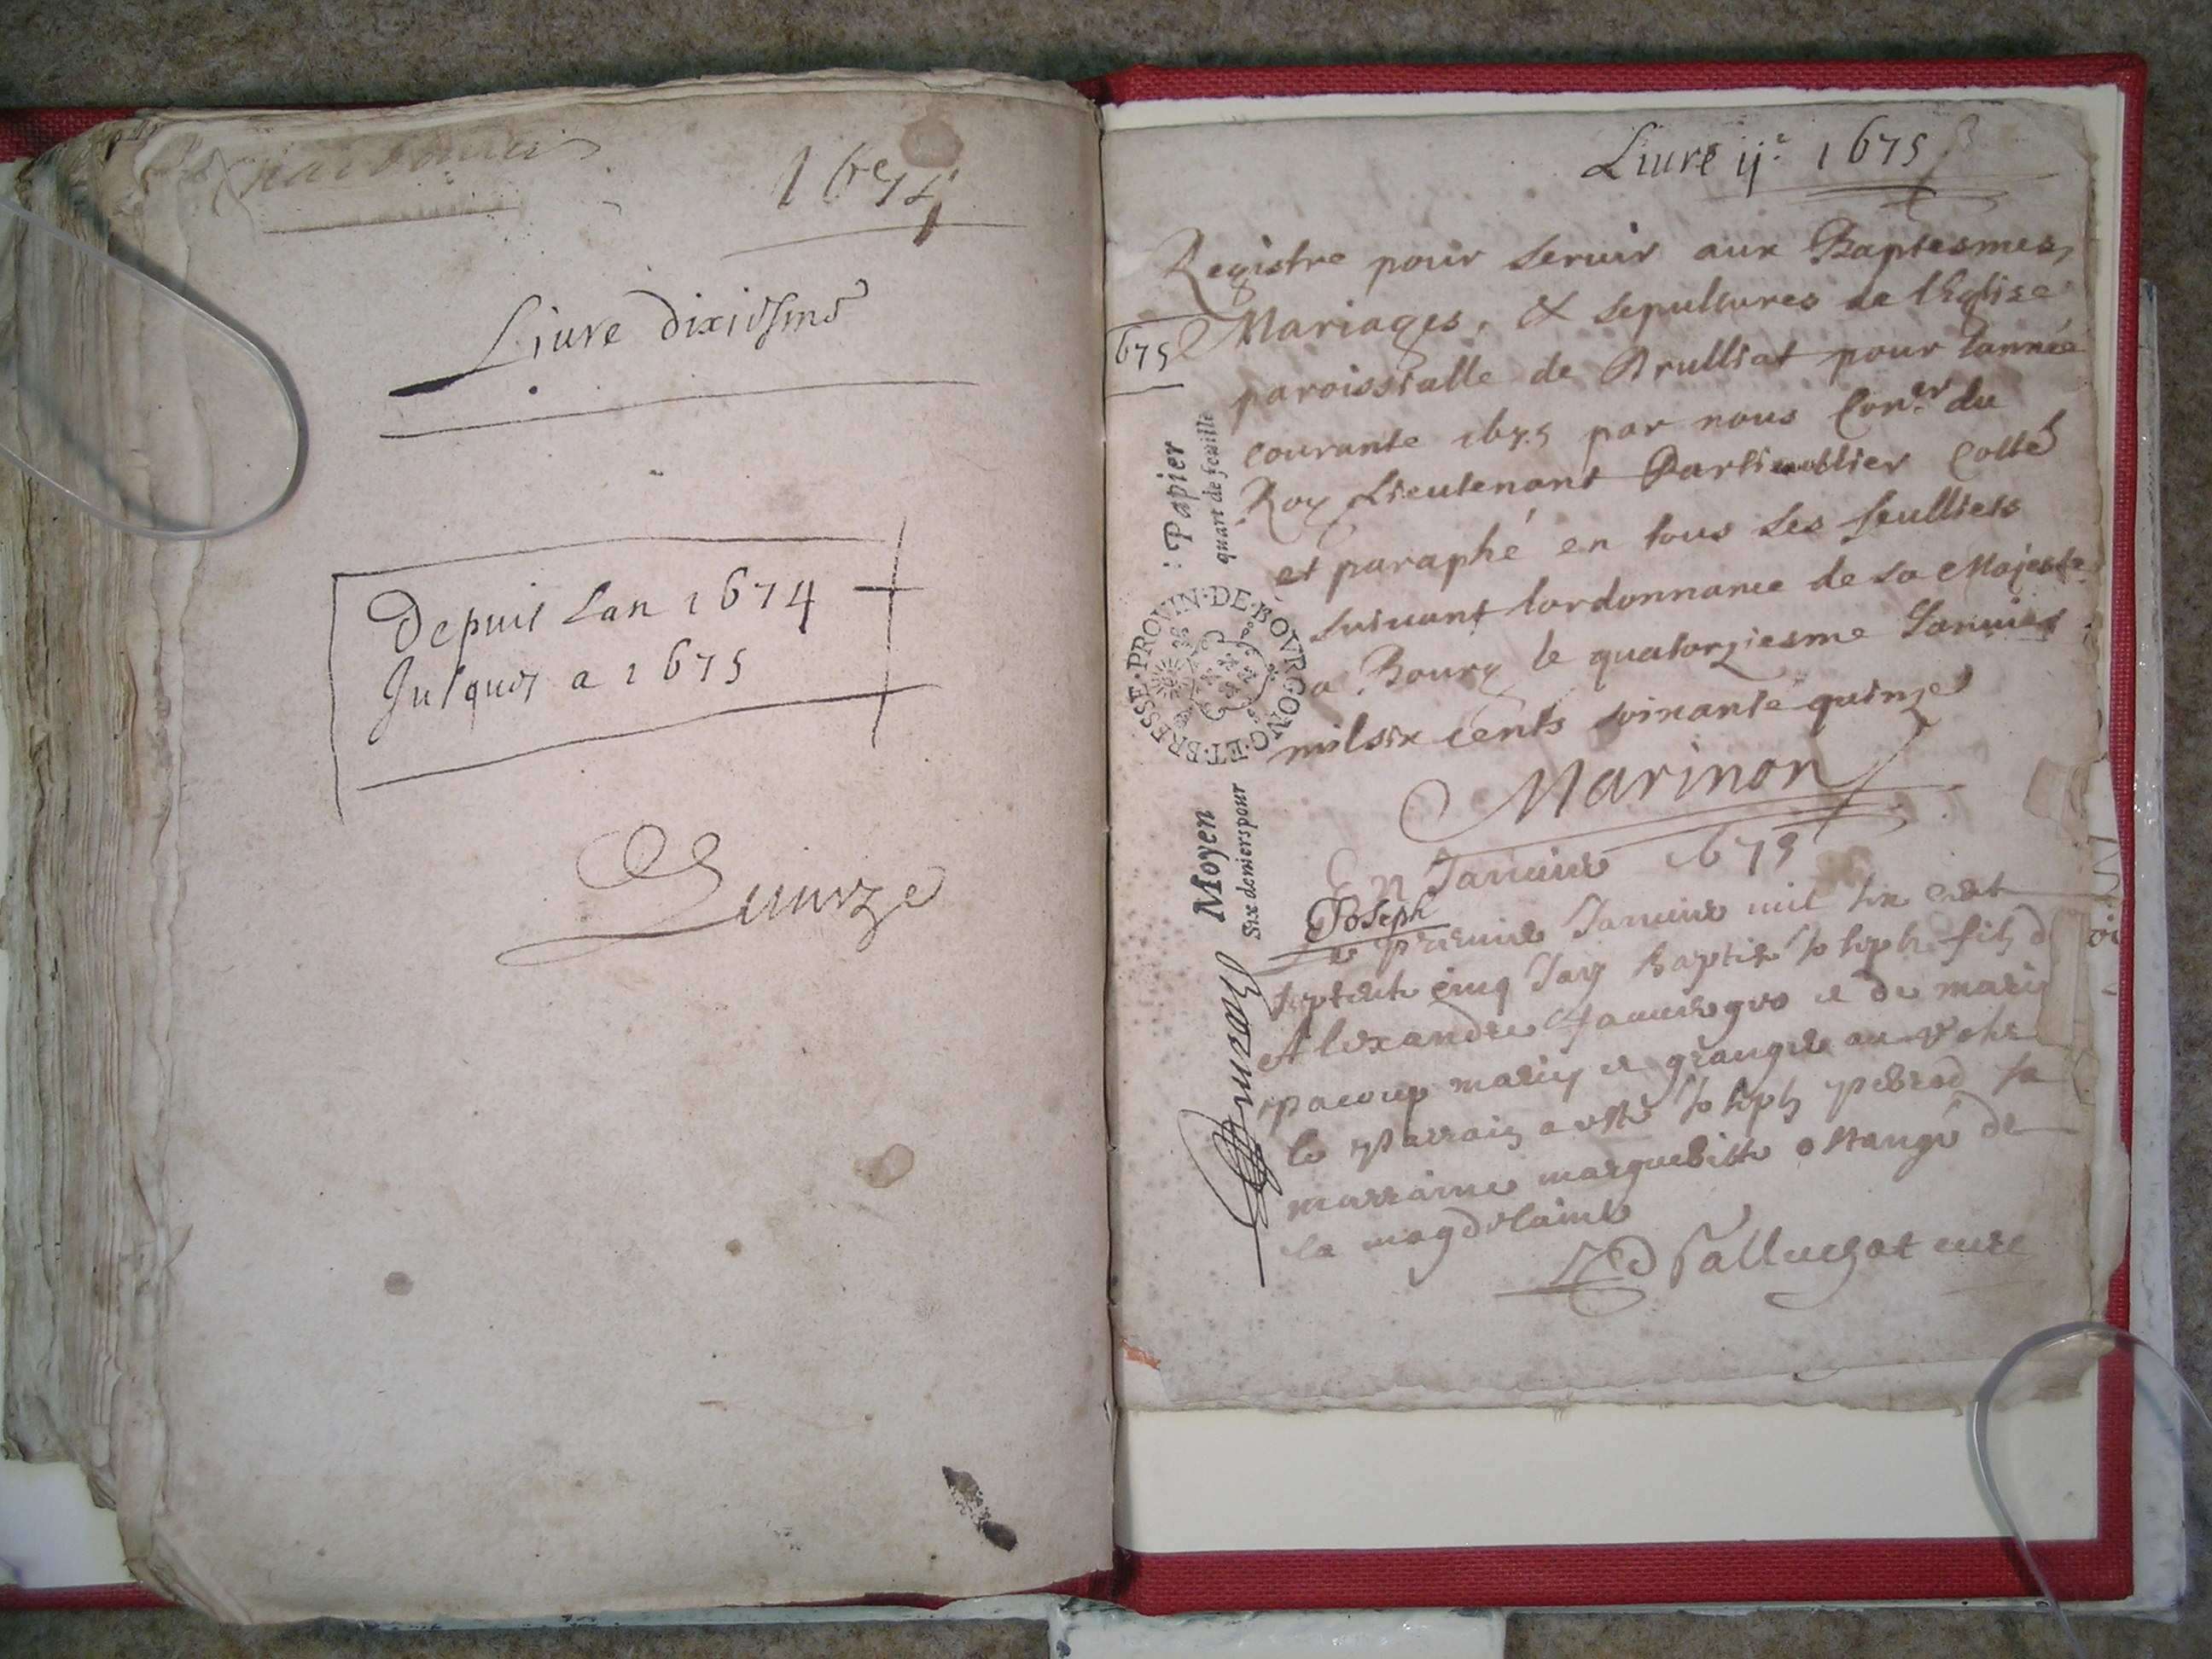 1674
Liure dixiesme
Depuis Lan 1674
Jusques a 1675
Liure ij.e 1675
Registre pour seruir aux Baptesmes,
Mariages, & sepultures de lEglise
675
paroissialle de Drulliat pour lannée
courante 1675 par nous Con.er du
Roy Lieutenant Particullier Cotté
et paraphé en tous ses feulliets
suiuant lordonnance de sa Majesté
a Bourg le quatorziesme Januier
mil six cents soixante quinze
Marinon
: Papier
quart de feuille
PROVIN·DE·BOVRGONG·ET·BRESSE·
Moyen
Six deniers pour
En Januier 1675
Joseph
Le premier Januier mil six cent
septente cinq Jay baptisé Joseph fils d
Alexandre et de marie
mariez et granger au
le parrain a esté Joseph la
marraine margueritte de
la magdelaine
Palluegat curé